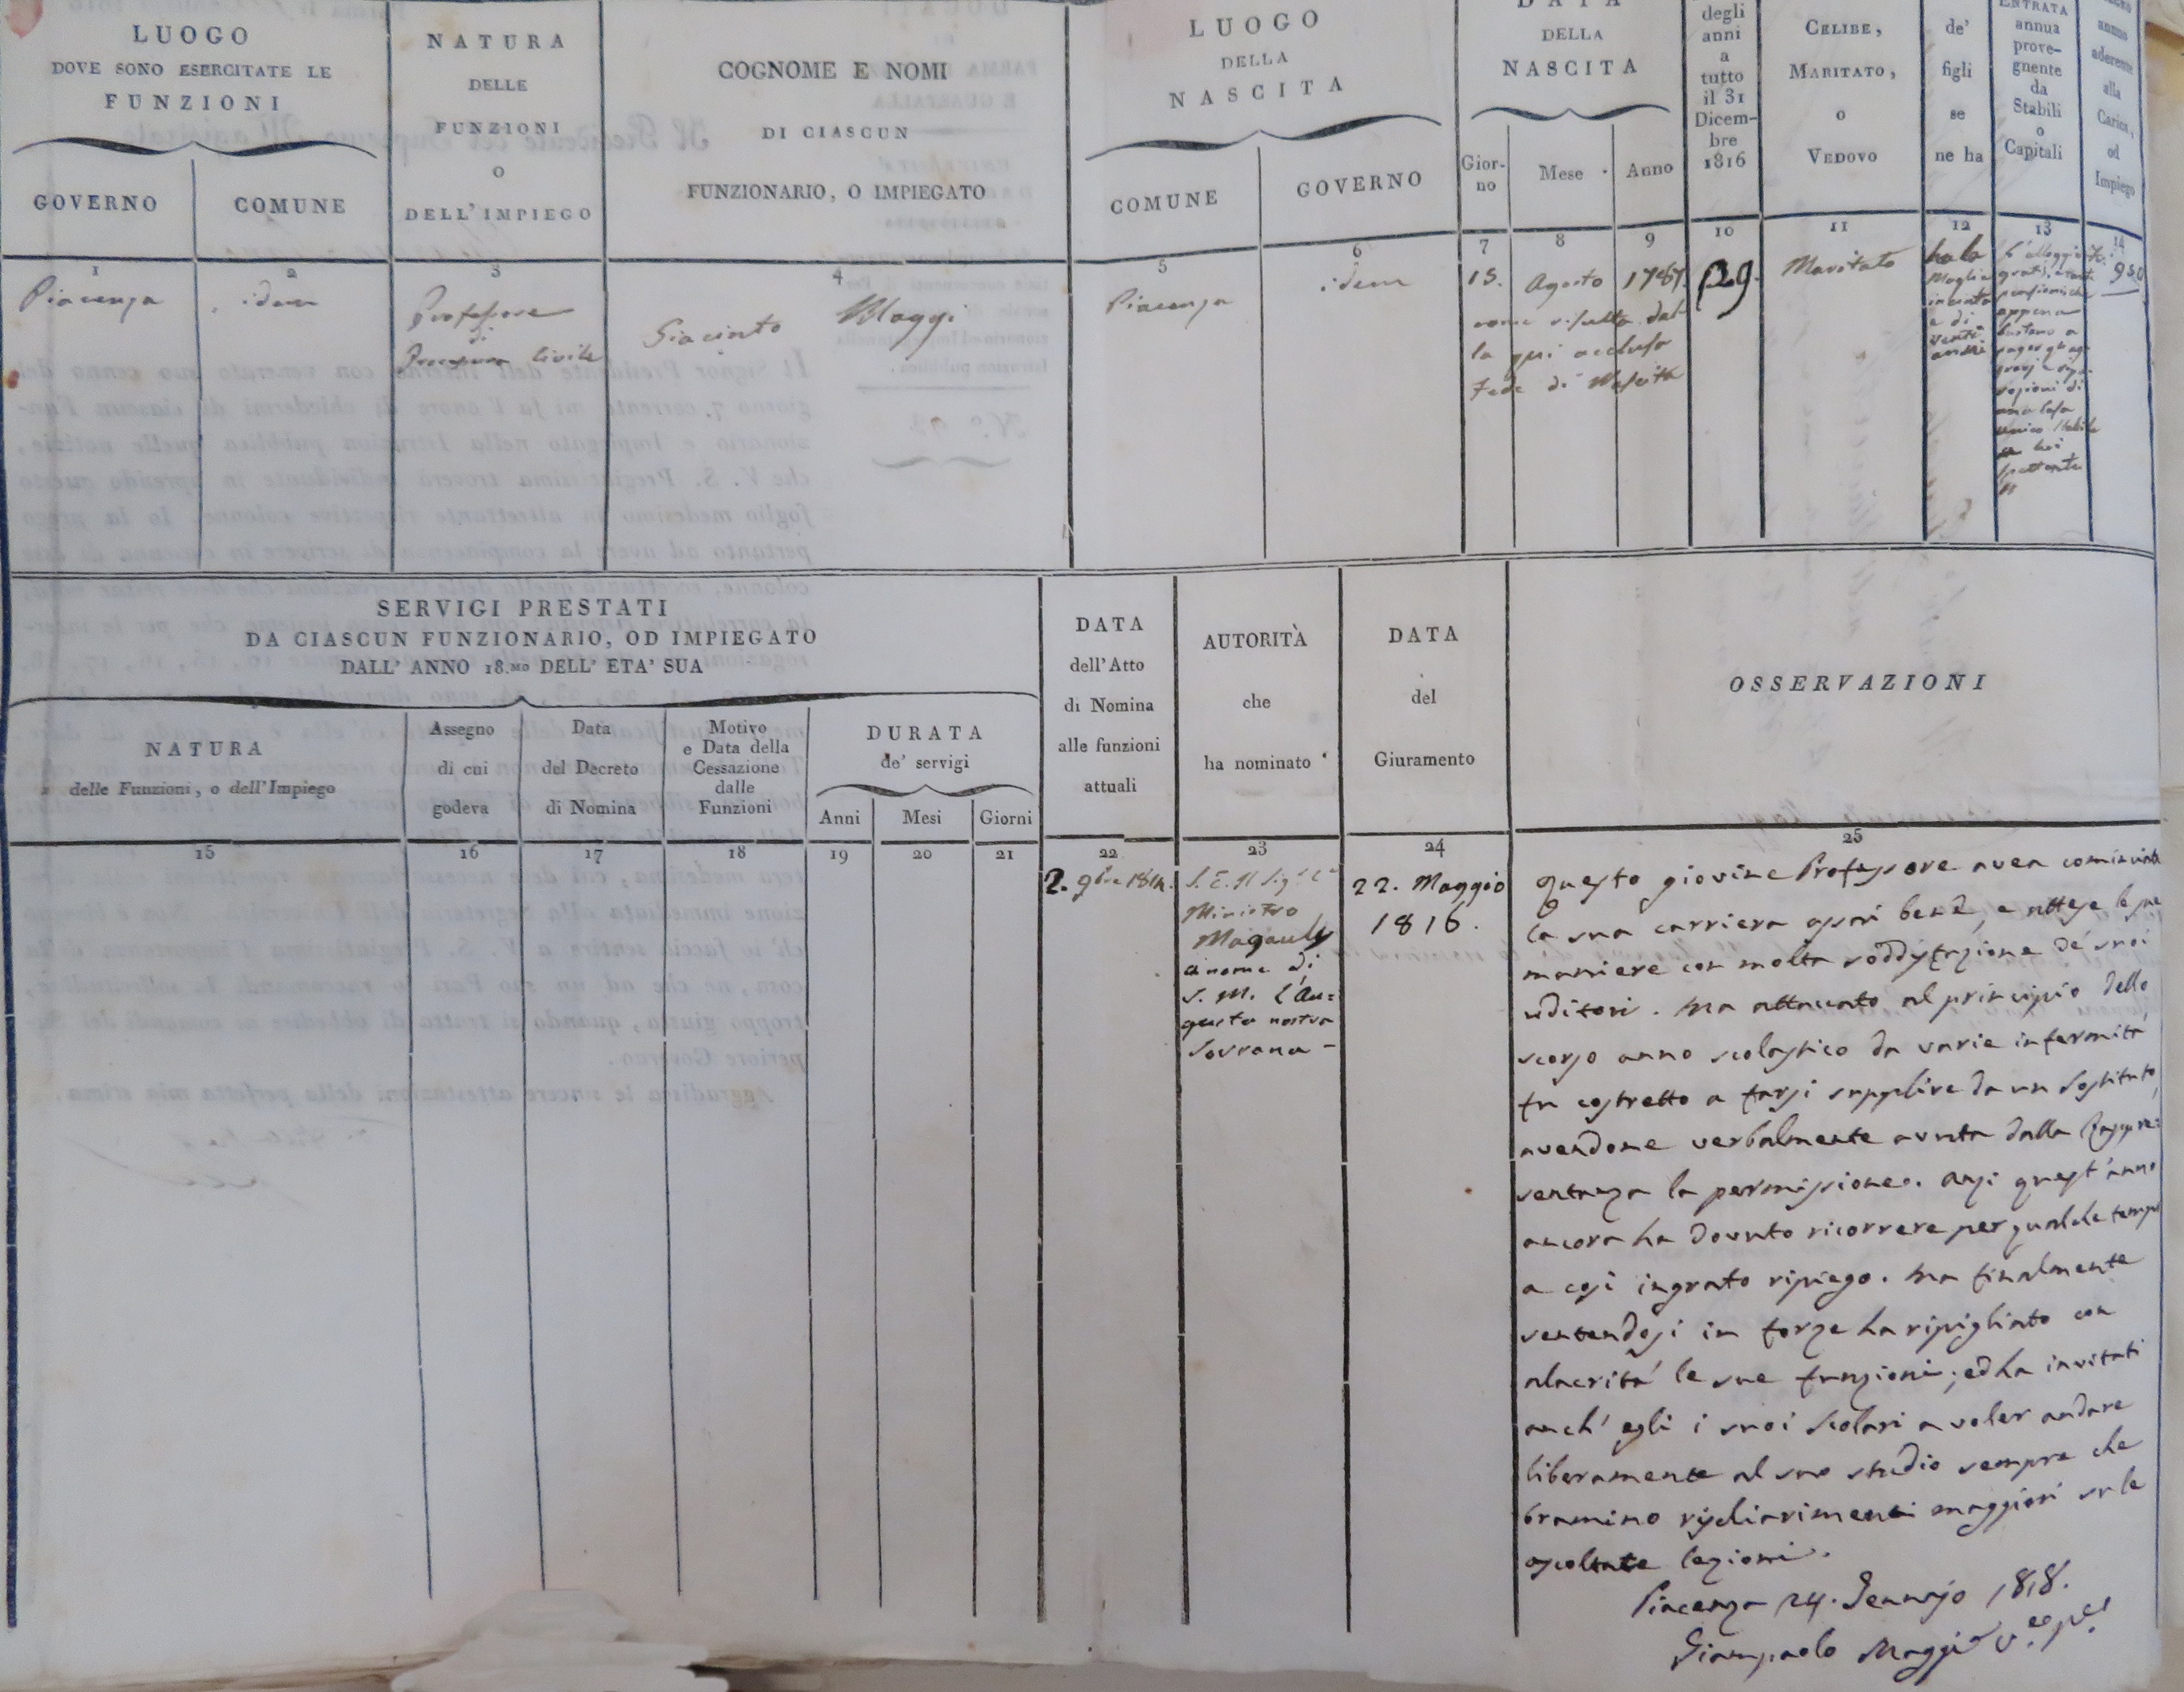 LUOGO
DOVE SONO ESERCITATE LE
FUNZIONI
GOVERNO
COMUNE
NATURA
DELLE
FUNZIONI
O
DELL'IMPIEGO
COGNOME E NOMI
DI CIASCUN
FUNZIONARIO, O IMPIEGATO
LUOGO
DELLA
NASCITA
COMUNE
GOVERNO
DATA
DELLA
NASCITA
Gior-
no
Mese
Anno
degli
anni
a
tutto
il 31
Dicem-
bre
1816
CELIBE,
MARITATO,
O
VEDOVO
de'
figli
se
ne ha
ENTRATA
annua
prove-
gnente
da
Stabili
o
Capitali
annuo
aderente
alla
Carica,
od
Impiego
1
2
3
4
5
6
7
8
9
10
11
12
13
14
Piacenza
idem
Professore
di
Procedura Civile
Giacinto Maggi
Piacenza
idem
15. Agosto 1787.
come risulta dal
la qui acclusa
Fede di Nascita
29.
Maritato
ha la
Moglie
incinta
e di
venti
anni
L'alloggio
appena
bastano a
pagar gli ag
gravj e
di
una Casa
unico stabile
a lui
spettante
950
SERVIGI PRESTATI
DA CIASCUN FUNZIONARIO, OD IMPIEGATO
DALL' ANNO 18.MO DELL' ETA' SUA
NATURA
delle Funzioni, o dell'Impiego
Assegno
di cui
godeva
Data
del Decreto
di Nomina
Motivo
e Data della
Cessazione
dalle
Funzioni
DURATA
de' servigi
Anni
Mesi
Giorni
DATA
dell'Atto
di Nomina
alle funzioni
attuali
AUTORITÀ
che
ha nominato
DATA
del
Giuramento
OSSERVAZIONI
15
16
17
18
19
20
21
22
23
24
25
2. 9bre 1814.
S. E. Il Sigr
Ministro
Magauly
a nome di
S. M. l'Au=
gusta nostra
Sovrana -
22. Maggio
1816.
Questo giovine Professore avea cominciata
la sua carriera assai bene, e attese le sue
maniere con molta soddisfazione de' suoi
uditori. Ma attaccato al principio dello
scorso anno scolastico da varie infermità
fu costretto a farsi supplire da un Sostituto,
avendone verbalmente avuta dalla Rappre=
sentanza la permissione. Anzi quest'anno
ancora ha dovuto ricorrere per qualche tempo
a così ingrato ripiego. Ma finalmente
sentendosi in forze ha ripigliato con
alacrità le sue funzioni; ed ha invitati
anch'egli i suoi Scolari a voler andare
liberamente al suo studio sempre che
bramino rischiarimenti maggiori su le
ascoltate lezioni.
Piacenza 24. Gennajo 1818.
Giampaolo Maggi